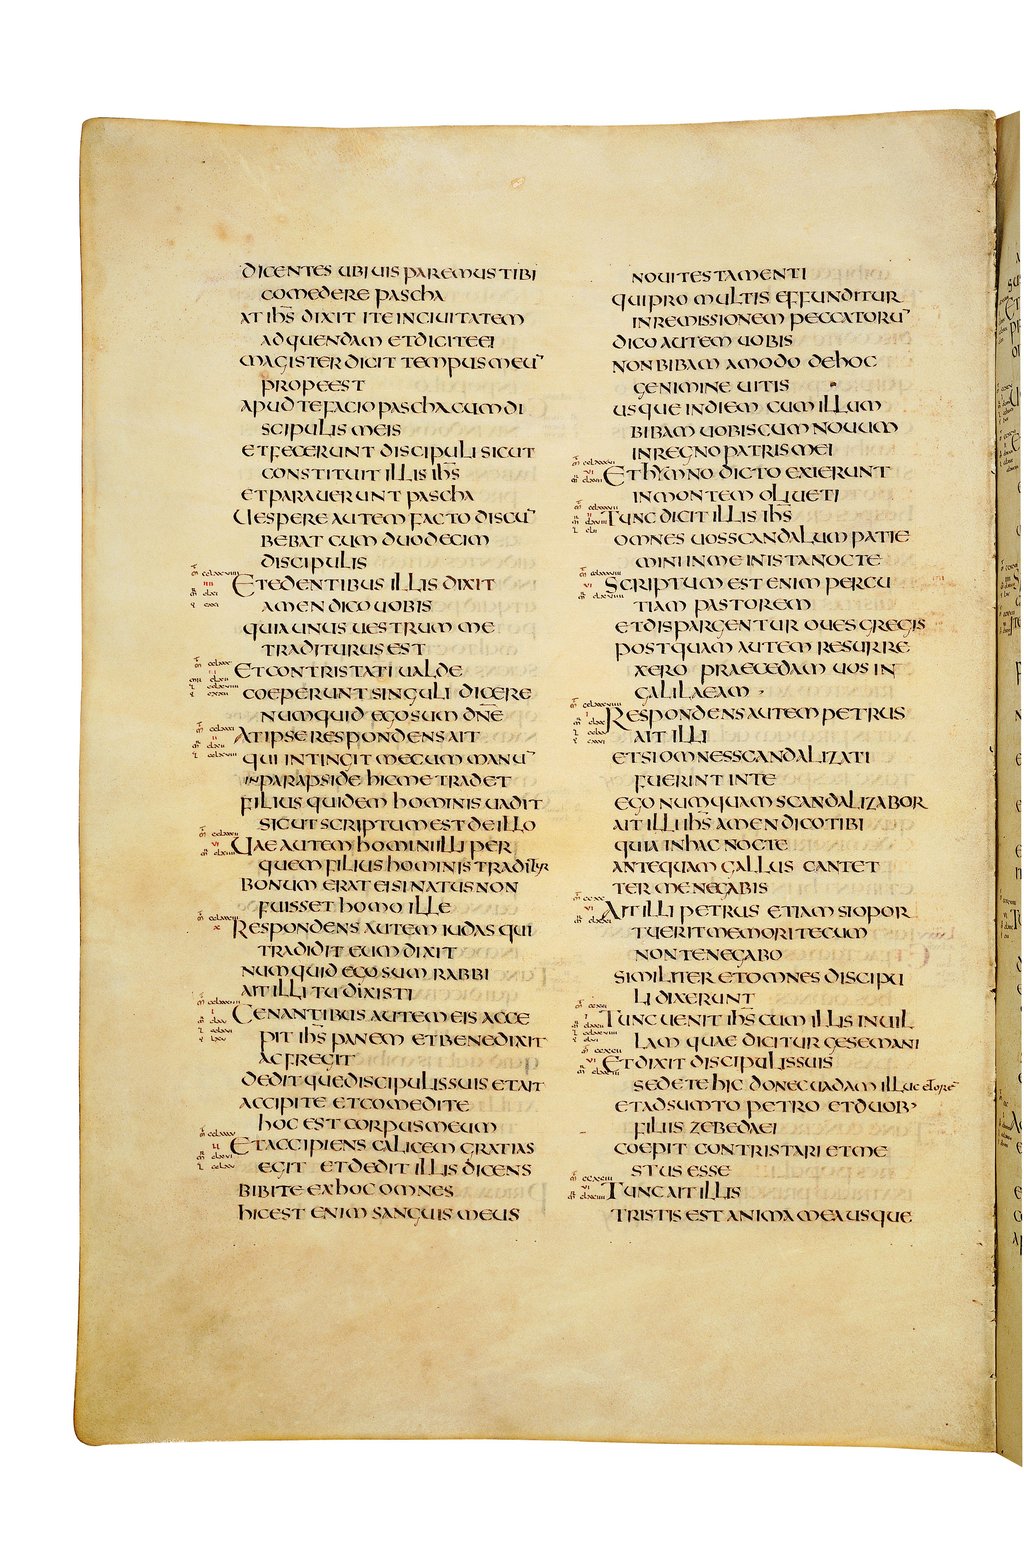 DICENTES UBI UIS PAREMUS TIBI
COMEDERE PASCHA
AT IHS̅ DIXIT ITE IN CIUITATEM
AD QUENDAM ET DICITE EI
MAGISTER DICIT TEMPUS MEU̅
PROPE EST
APUD TE FACIO PASCHA CUM DI
SCIPULIS MEIS
ET FECERUNT DISCIPULI SICUT
CONSTITUIT ILLIS IHS̅
ET PARAUERUNT PASCHA
UESPERE AUTEM FACTO DISCU̅
BEBAT CUM DUODECIM
DISCIPULIS
ET EDENTIBUS ILLIS DIXIT
AMEN DICO UOBIS
QUIA UNUS UESTRUM ME
TRADITURUS EST
ET CONTRISTATI UALDE
COEPERUNT SINGULI DICERE
NUMQUID EGO SUM DN̅E
AT IPSE RESPONDENS AIT
QUI INTINGIT MECUM MANU̅
IN PARAPSIDE HIC ME TRADET
FILIUS QUIDEM HOMINIS UADIT
SICUT SCRIPTUM EST DE ILLO
UAE AUTEM HOMINI ILLI PER
QUEM FILIUS HOMINIS TRADITUR
BONUM ERAT EI SI NATUS NON
FUISSET HOMO ILLE
RESPONDENS AUTEM IUDAS QUI
TRADIDIT EUM DIXIT
NUMQUID EGO SUM RABBI
AIT ILLI TU DIXISTI
CENANTIBUS AUTEM EIS ACCE
PIT IHS̅ PANEM ET BENEDIXIT
AC FREGIT
DEDITQUE DISCIPULIS SUIS ET AIT
ACCIPITE ET COMEDITE
HOC EST CORPUS MEUM
ET ACCIPIENS CALICEM GRATIAS
EGIT ET DEDIT ILLIS DICENS
BIBITE EX HOC OMNES
HIC EST ENIM SANGUIS MEUS
NOUI TESTAMENTI
QUI PRO MULTIS EFFUNDITUR
IN REMISSIONEM PECCATORU̅
DICO AUTEM UOBIS
NON BIBAM AMODO DE HOC
GENIMINE UITIS
USQUE IN DIEM CUM ILLUM
BIBAM UOBISCUM NOUUM
IN REGNO PATRIS MEI
ET HYMNO DICTO EXIERUNT
IN MONTEM OLIUETI
TUNC DICIT ILLIS IHS̅
OMNES UOS SCANDALUM PATIE
MINI IN ME IN ISTA NOCTE
SCRIPTUM EST ENIM PERCU
TIAM PASTOREM
ET DISPARGENTUR OUES GREGIS
POSTQUAM AUTEM RESURRE
XERO PRAECEDAM UOS IN
GALILAEAM
RESPONDENS AUTEM PETRUS
AIT ILLI
ET SI OMNES SCANDALIZATI
FUERINT IN TE
EGO NUMQUAM SCANDALIZABOR
AIT ILLI IHS̅ AMEN DICO TIBI
QUIA IN HAC NOCTE
ANTEQUAM GALLUS CANTET
TER ME NEGABIS
AIT ILLI PETRUS ETIAM SI OPOR
TUERIT ME MORI TECUM
NON TE NEGABO
SIMILITER ET OMNES DISCIPU
LI DIXERUNT
TUNC UENIT IHS̅ CUM ILLIS IN UIL
LAM QUAE DICITUR GESEMANI
ET DIXIT DISCIPULIS SUIS
SEDETE HIC DONEC UADAM ILLUC ET ORE̅
ET ADSUMTO PETRO ET DUOB·
FILIIS ZEBEDAEI
COEPIT CONTRISTARI ET ME
STUS ESSE
TUNC AIT ILLIS
TRISTIS EST ANIMA MEA USQUE